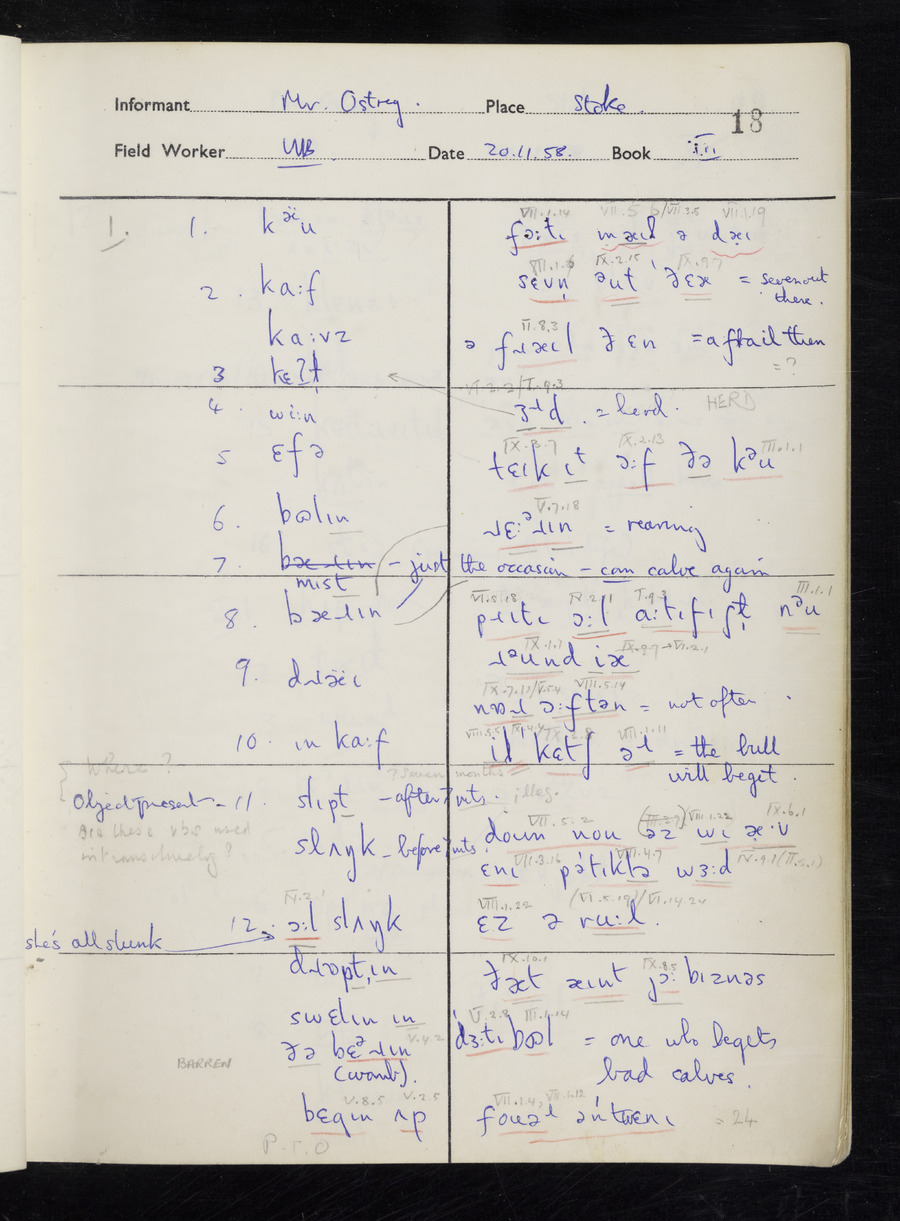 Informant Mr. Ostrey. Place Stoke.
18
Field Worker Date 20.11.58. Book III
1. 1. kəüu
2. ka:f
ka:vz
3 kɛʔt
4. wi:n
5 ɛfə
6. bʊlɪn
7. – just the occasion – can calve again
mɪst
8. bæɹɪn
9. dɹəïɪ
10. ɪn ka:f
Where?
Object present – 11. slɪpt – after 7 mts. illeg.
? seven months
Are these vbs used
intransitively?
slʌŋk – before 7 mts.
12. ɔ:l slʌŋk
she's all slunk
dɹɒpt,ɪn
swɛlɪn ɪn
ðə bɛᵊɹɪn V.4.2
BARREN
(womb).
V.8.5 V.2.5
bɛgɪn ʌp
P.T.O
VII.1.14 VII.5 VII.3.5 VII.1.19
fɔ:tɪ mæɪl ə dæɪ
IX.2.15 IX.9.7
sɛvn̩ əut ðɛə = seven out
there.
II.8.3
ə fɹæɪl ðɛn = a frail then
= ?
ɜ:ɹd. = herd. HERD
IX.3.7 IX.2.13 III.1.1
tɛɪk ɪt ɔ:f ðə kəu
V.7.18
ɹɛ:ᵊɹɪn = rearing
VI.5.18 I.9.3 III.1.1
pɹɪtɪ ɔ:l a:tɪfɪʃl̩ nəu
IX.1.1 IX.9.7 → VI.2.1
ɹəund ɪə
VIII.5.14
nɒt ɔ:ftən = not often
VII.1.11
ɪl kɛtʃ əl = the bull
will beget.
VII.5.2 VIII.1.22 IX.6.1
doun nou əz wɪ æ:v
VII.3.16 VII.4.7
ɛnɪ pətɪklə wɜ:d
VIII.1.22 (VI.5.19)/VI.14.24
ɛz ə ru:l.
IX.10.1 IX.8.5
ðæt æɪnt jɔ: bɪznəs
V.2.8 III.1.14
dɜ:tɪ bʊl = one who begets
bad calves.
VII.1.4, VII.1.12
fouəɹ ən twɛnɪ = 24